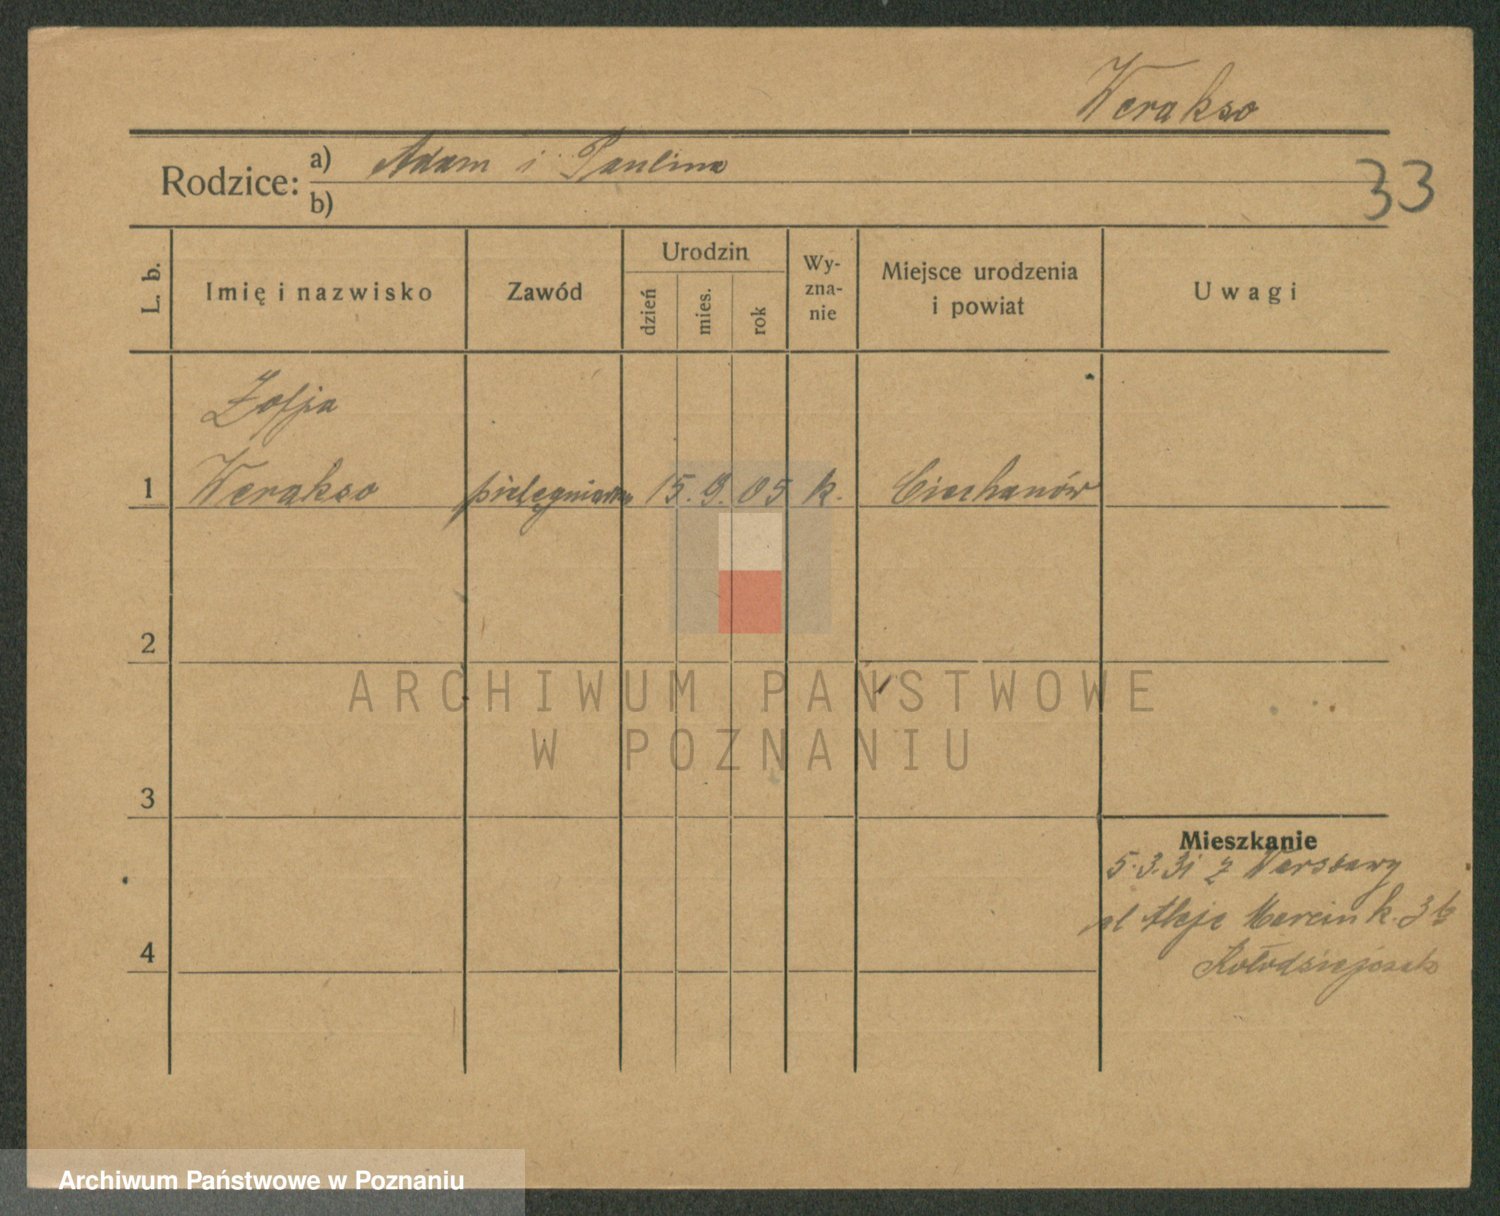 Werakso
Rodzice: a) Adam i Paulina
33
b)
L. b.
Imię i nazwisko
Zawód
Urodzin
dzień
mies.
rok
Wy-
zna-
nie
Miejsce urodzenia
i powiat
Uwagi
Zofja
1 Werakso pielęgniarka 15. 9. 05 k. Ciechanów
2
ARCHIWUM PAŃSTWOWE
W POZNANIU
3
Mieszkanie
5.3.31 z Warszawy
Aleje Marcink.
4
Kołodziejczak
Archiwum Państwowe w Poznaniu